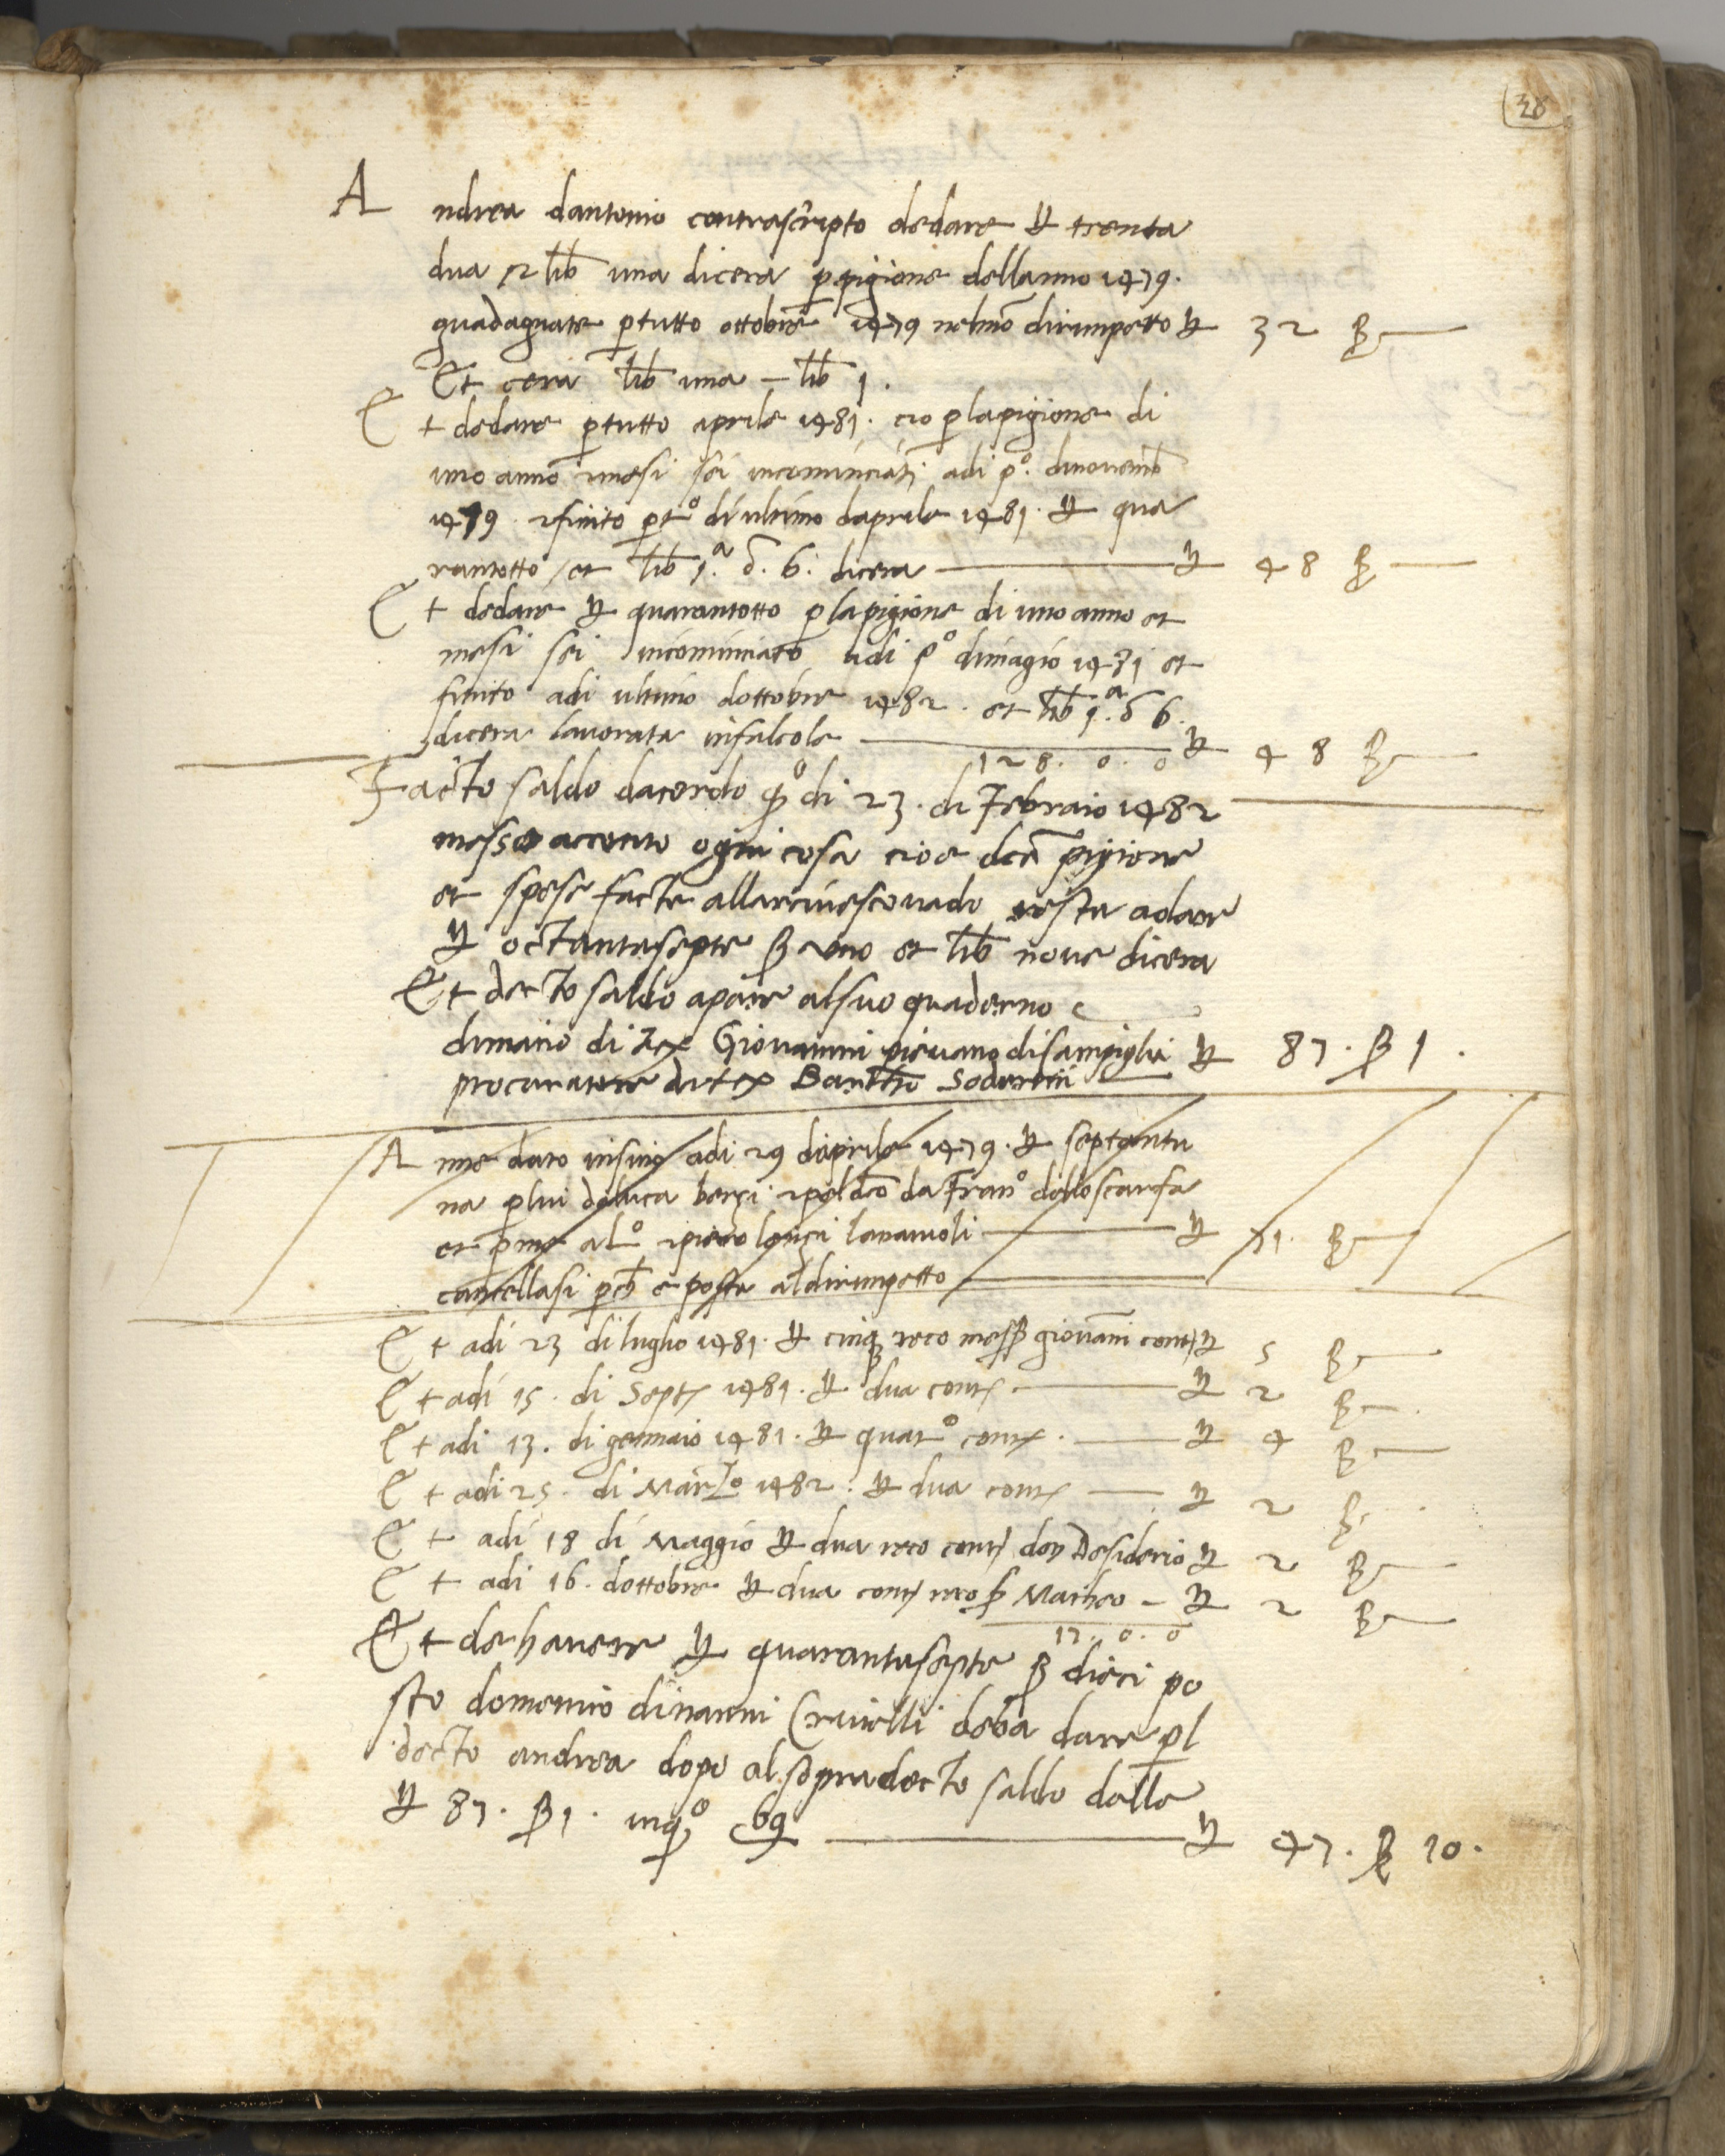 38
Andrea dantonio contrascripto dedare ₶ trenta
dua 2 lib una dicera p pigione dellanno 1479.
guadagnate ptutto ottobre 1479 nelmo dirimpetto ₶ 32 β —
Et cera lib una — lib 1.
Et dedare ptutto aprile 1481. cio p lapigione di
uno anno 2 mesi sei incominciati adi p.º dinovemb
1479. 2 finito p tº dì ultimo daprile 1481. ₶ qua
rantotto / et lib 1.ª δ. 6. dicera — ₶ 48 β —
Et dedare ₶ quarantotto p lapigione di uno anno et
mesi sei incominciato adi pº dimagio 1481 et
finito adi ultimo dottobre 1482. et lib 1.ª δ 6.
dicera lavorata infalcole — ₶ 48 β —
128. 0. 0
Facto saldo dacordo qº di 23. di Febraio 1482
messo accento ogni cosa cioe dca pigione
et spese facte allarcivescovado resta adare
₶ octantasepte β uno et lib nove dicera
Et decto saldo apare alsuo quaderno
dimano di Giovanni piovano disampiglu ₶ 87. β 1.
procuratore Soderini
Anne dato insino adi 29 daprile 1479. ₶ septantu
na p lui daluca berci 2 pel dco da Franº delloscarfa
et p me al 2 piero lanamoli — ₶ 71. β —
cancellasi pch e posta al dirimpetto —
Et adi 23 di luglio 1481. ₶ cinq reco mess giovani cont ₶ 5 β —
Et adi 15. di Sept 1481. ₶ dua cont — ₶ 2 β —
Et adi 13. di gennaio 1481. ₶ quatº cont. — ₶ 4 β —
Et adi 25. di Marzo 1482: ₶ dua cont — ₶ 2 β
Et adi 18 di Maggio ₶ dua reco cont don Desiderio ₶ 2 β —
Et adi 16. dottobre ₶ dua cont reco Matheo — ₶ 2 β —
17. 0. 0
Et de havere ₶ quarantasepte β dieci po
sto domenico dinanni Crivelli deba dare pl
decto andrea dopo al sopradecto saldo delle
₶ 87. β 1. inqº 69 — ₶ 47. β 10.